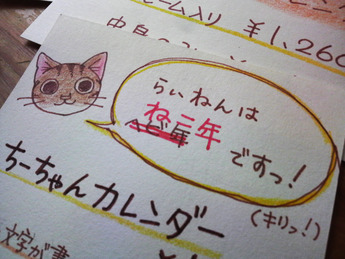 ーム入り ¥1,260
中身の
らいねんは
ねこ年
ヘビ年
ですっ!
ちーちゃんカレンダー
(キリっ!)
文字が書